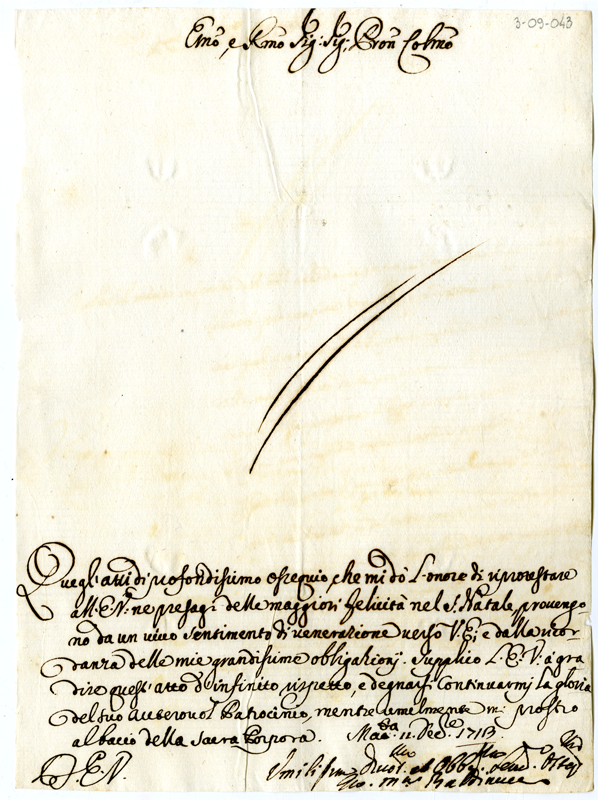 3-09-043
Emo, e Rmo Sig: Sig: Pron Colmo
Quegl'atti di profondissimo ossequio, che mi dò l'onore di riprotestare
all'E.V: ne presagi delle maggiori felicità nel S. Natale, provengo
no da un vivo sentimento di venerazione verso V.E; e dalla ricor
danza delle mie grandissime obligazionj. Supplico L.E.V: à gra
dire quest'atto d'infinito rispetto, e degnarsi continuarmj la gloria
del suo autorevol Patrocinio, mentre umilmente mi prostro
al bacio della Sacra Porpora. 11 Dec.e 1713.
V.E.V.
Umilissmo Devot. et Obbl.